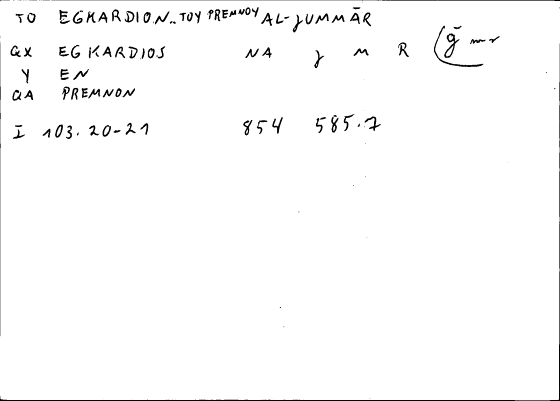 TO EGKARDION.. TOY PREMNOY AL-ɣUMMĀR
QX EGKARDIOS NA ɣ M R (ḡ mr
Y EN
QA PREMNON
I 103.20-21 854 585.7